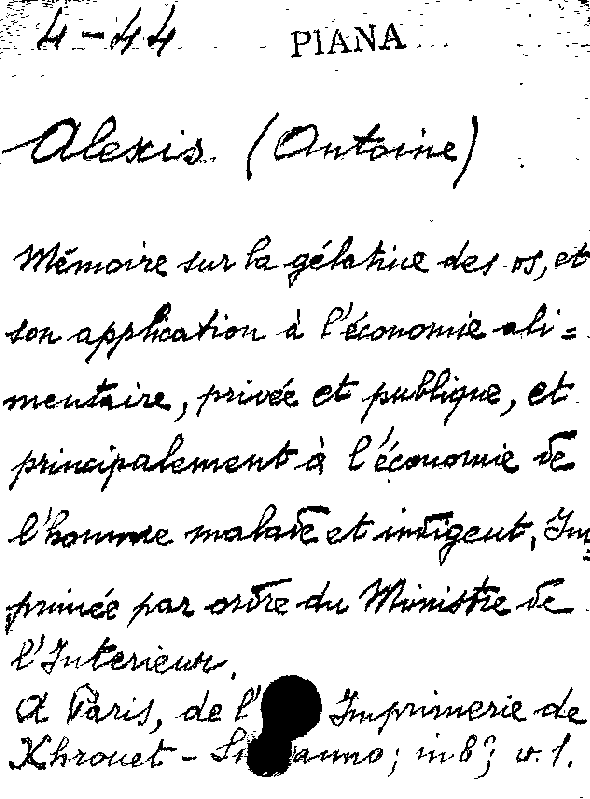 4-44 PIANA
Alexis (Antoine)
Mémoire sur la gélatine des os, et
son application à l'économie ali=
mentaire, privée et publique, et
principalement à l'économie de
l'homme malade et indigent, Im
primée par ordre du Ministre de
l'Interieur.
A Paris, de l' Imprimerie de
Xhrouet - anno; in 8º; v. 1.